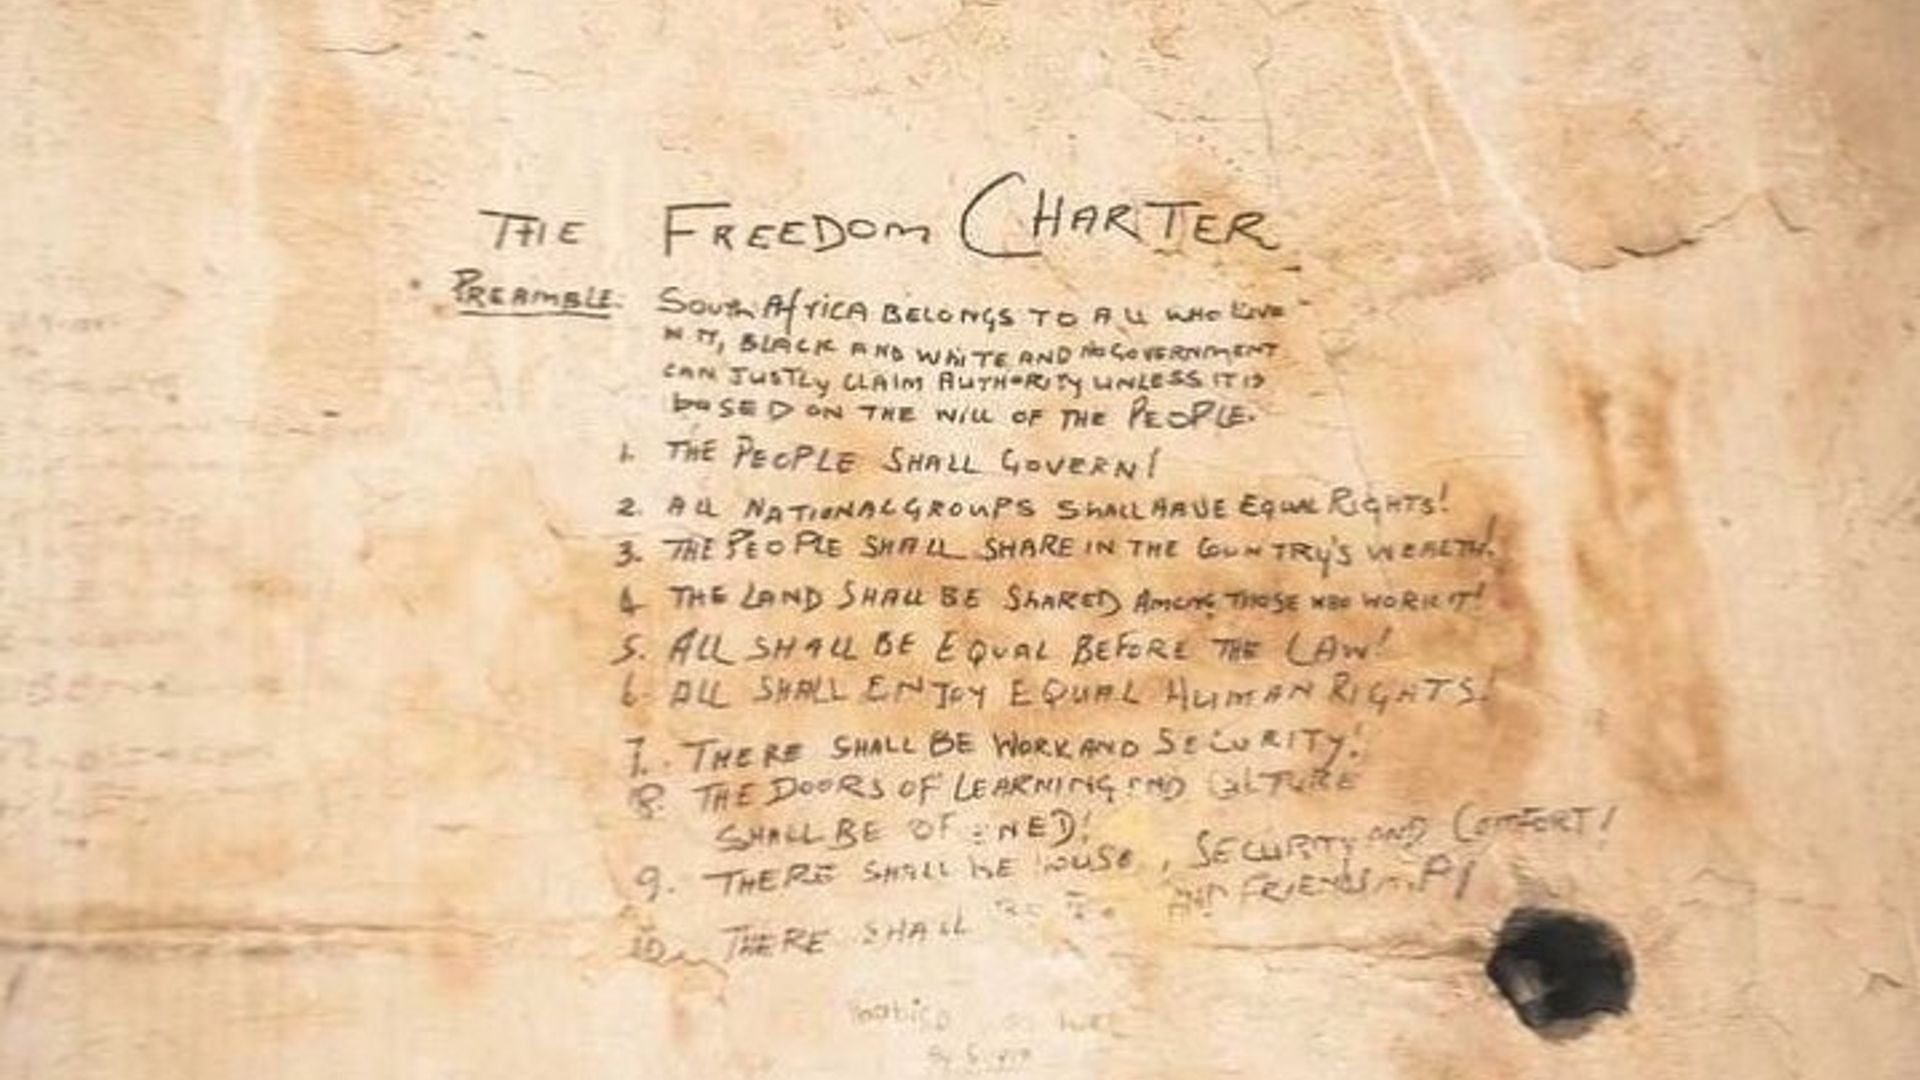 THE FREEDOM CHARTER
PREAMBLE: SOUTH AfrICA BELONGS TO ALL WHO LIVE
IN IT, BLACK AND WHITE AND NO GOVERNMENT
CAN JUSTLY CLAIM AUTHORITY UNLESS IT IS
bASED ON THE WILL OF THE PEOPLE.
1. THE PEOPLE SHALL GOVERN!
2. ALL NATIONAL GROUPS SHALL HAVE EQUAL RIGHTS!
3. THE PEOPLE SHALL SHARE IN THE COUNTRY'S WEALTH!
4 THE LAND SHALL BE SHARED AMONG THOSE WHO WORK IT!
5. ALL SHALL BE EQUAL BEFORE THE LAW!
6 ALL SHALL ENJOY EQUAL HUMAN RIGHTS!
7. THERE SHALL BE WORK AND SECURITY!
8. THE DOORS OF LEARNING AND CULTURE
SHALL BE OPENED!
9. THERE SHALL BE , SECURITY AND COMFORT!
10 THERE SHALL BE AND FRIENDSHIP!